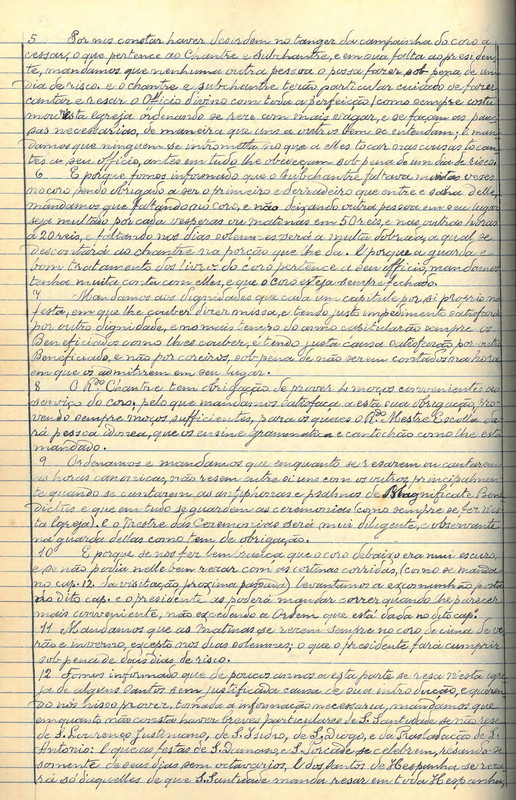 5 Por nos constar haver desordem no tanger da campainha do coro a
cessar, o que pertence ao Chantre e Subchantre, e em sua falta ao presiden-
te, mandamos que nenhuma outra pessoa o possa fazer sob pena de um
dia de risco. e o chantre e subchantre terão particular cuidado de fazer
cantar e resar o Officio divino com toda a perfeição (como sempre costu
mou esta Igreja ordenando se rese com mais vagar, e se façam as pau-
sas necessarias, de maneira que uns a outros bem se entendam; E man
damos que ninguem se intrometta no que a elles tocar nas cousas tocan
tes a seu officio, antes em tudo lhe obedeçam sob pena de um dia de risco.
6 E porque fomos informado que o Subchantre faltava muitas veses
no coro, sendo obrigado a ser o primeiro e derradeiro que entre e saia delle,
mandamos que faltando no coro, e não deixando outra pessoa em seu lugar
seja multado por cada vesporas ou matinas em 50 reis, e nas outras horas
a 20 reis, e faltando nos dias solemnes será a multa dobrada, a qual se
descontará ao chantre na porção que lhe dá. E porque a guarda e
bom tratamento dos livros do coro pertence a seu officio, mandamos
tenha muita conta com elles, e que o coro esteja sempre fechado.
7 Mandamos aos dignidades que cada um capitule por si proprio na
festa, em que lhe couber direr missa, e tendo justo impedimento satisfará
por outro dignidade, e no mais tempo do anno capitularão sempre os
Beneficiados como lhes couber, e tendo justa causa satisfarão por outro
Beneficiado, e não por coreiros, sob pena de não serem contados na hora
em que os admitirem em seu lugar.
8 O Rdo Chantre tem obrigação de prover 4 moços convenientes ao
serviço do coro: pelo que mandamos satisfaça a esta sua obrigação, pro-
vendo sempre moços sufficientes, para os quaes o Rdo Mestre Escolla da-
rá pessoa idonea, que os ensine grammatica e cantochão como lhe está
mandado.
9 Ordenamos e mandamos que enquanto se resarem ou cantarem
as horas canonicas, não resem entre si uns com os outros principalmen-
te quando se cantarem as antiphonas e psalmos de Magnificat e Bene
dictus e que em tudo se guardem as ceremonias (como sempre se fez nes
ta Igreja). E o Mestre das Ceremonias será mui diligente, e observante
na guarda dellas como tem de obrigação.
10 E porque se nos fez lembrança que o coro debaixo era mui escuro,
e se não podia nelle bem rezar com as cortinas corridas, (como se manda
no cap. 12. da visitação proxima passada) levantamos a excomunhão posta
no dito cap. e o presidente as poderá mandar correr quando lhe parecer
mais conveniente, não excedendo a Ordem que está dada no dito cap:
11 Mandamos que as matinas se rezem sempre no coro de cima de ve-
rão e inverno, excepto nos dias solemnes; o que o presidente fará cumprir
sob pena de dous dias de risco.
12 Fomos informado que de poucos annos a esta parte se resa n'esta egre
ja de alguns santos sem justificada causa de sua introducção, e queren
do nós nisso prover, tomada a informação necessaria, mandamos que
emquanto não consta haver breves particulares de S. Santidade se não rese
de S. Lourenço Justiniano, de S. Isidro, de S. Diogo, e da Trasladação de S.
Antonio: E que as festas de S. Damaso, e S. Torcade se celebrem, resando-se
somente de seus dias sem octavarios, E dos Santos de Hespanha se reza
rá só d'aquelles de que S. Santidade manda resar em toda Hespanha,